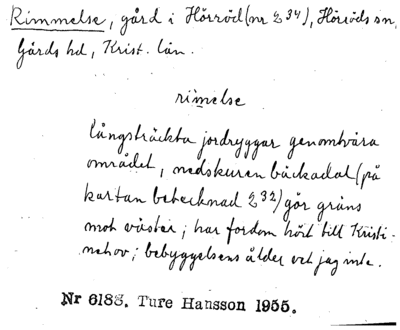 Rimmelse, gård i Hörröd (nr 2 34), Hörröds sn,
Gärds hd, Krist. län.
rimelse
långsträckta jordryggar genomtvära
området, nedskuren bäckadal (på
kartan betecknad 2 32) gör gräns
mot väster; har fordom hört till Kristi-
nehov; bebyggelsens ålder vet jag inte.
Nr 6183. Ture Hansson 1955.